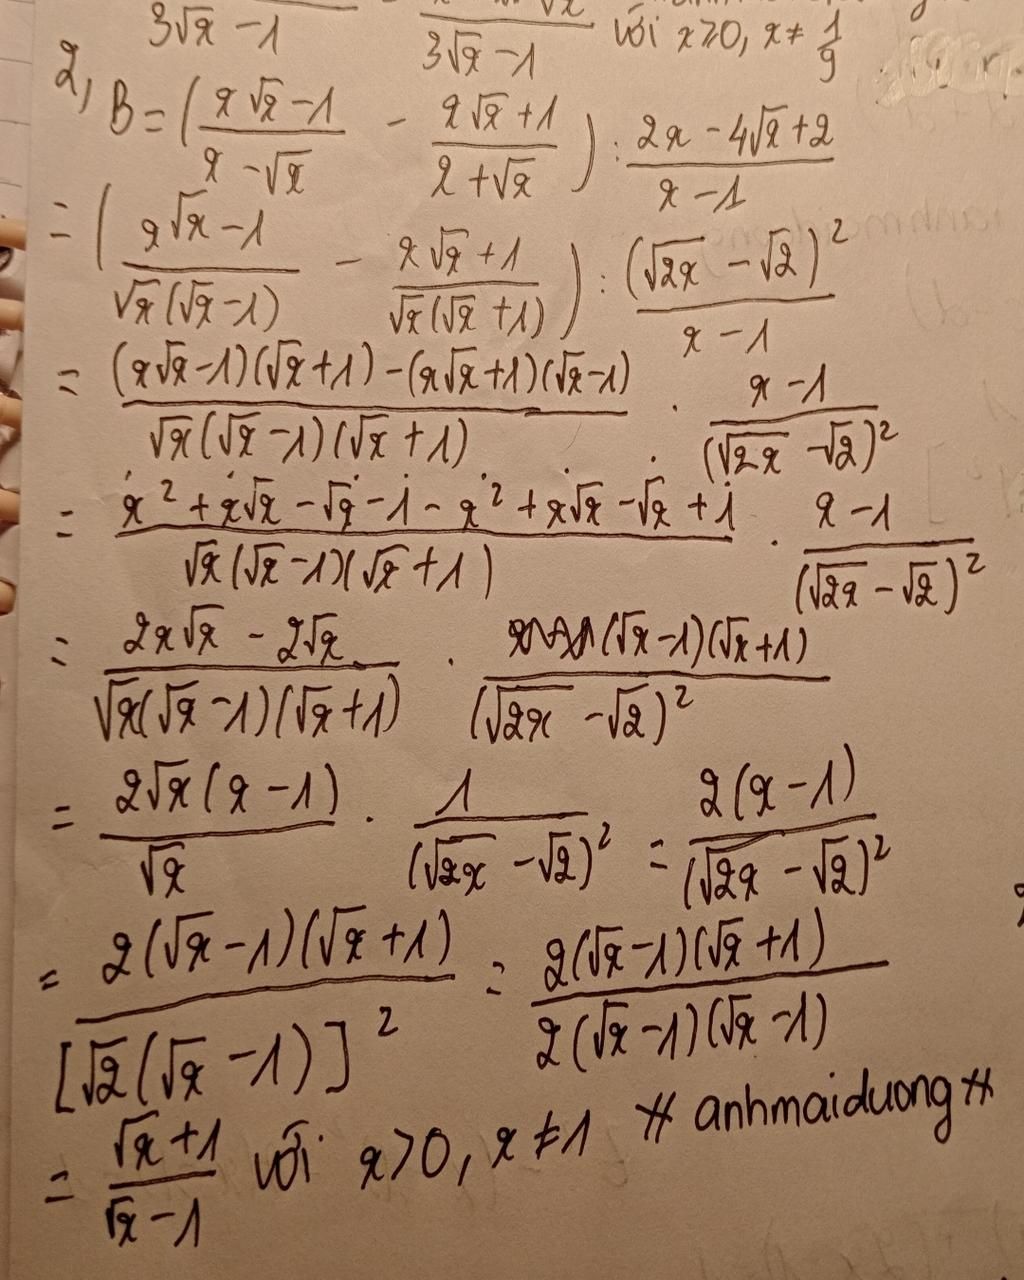 3√x - 1    3√x - 1    với x ≥ 0, x ≠ 1/9
2, B = ( (x√x - 1)/(x - √x) - (x√x + 1)/(x + √x) ) : (2x - 4√x + 2)/(x - 1)
= ( (x√x - 1)/(√x(√x - 1)) - (x√x + 1)/(√x(√x + 1)) ) : (√2x - √2)²/(x - 1)
= ((x√x - 1)(√x + 1) - (x√x + 1)(√x - 1))/(√x(√x - 1)(√x + 1)) . (x - 1)/(√2x - √2)²
= (x² + x√x - √x - 1 - x² + x√x - √x + 1)/(√x(√x - 1)(√x + 1)) . (x - 1)/(√2x - √2)²
= (2x√x - 2√x)/(√x(√x - 1)(√x + 1)) . (√x - 1)(√x + 1)/(√2x - √2)²
= 2√x(x - 1)/√x . 1/(√2x - √2)² = 2(x - 1)/(√2x - √2)²
= 2(√x - 1)(√x + 1)/[√2(√x - 1)]² = 2(√x - 1)(√x + 1)/(2(√x - 1)(√x - 1))
= (√x + 1)/(√x - 1) với x > 0, x ≠ 1 # anhmaiduong #